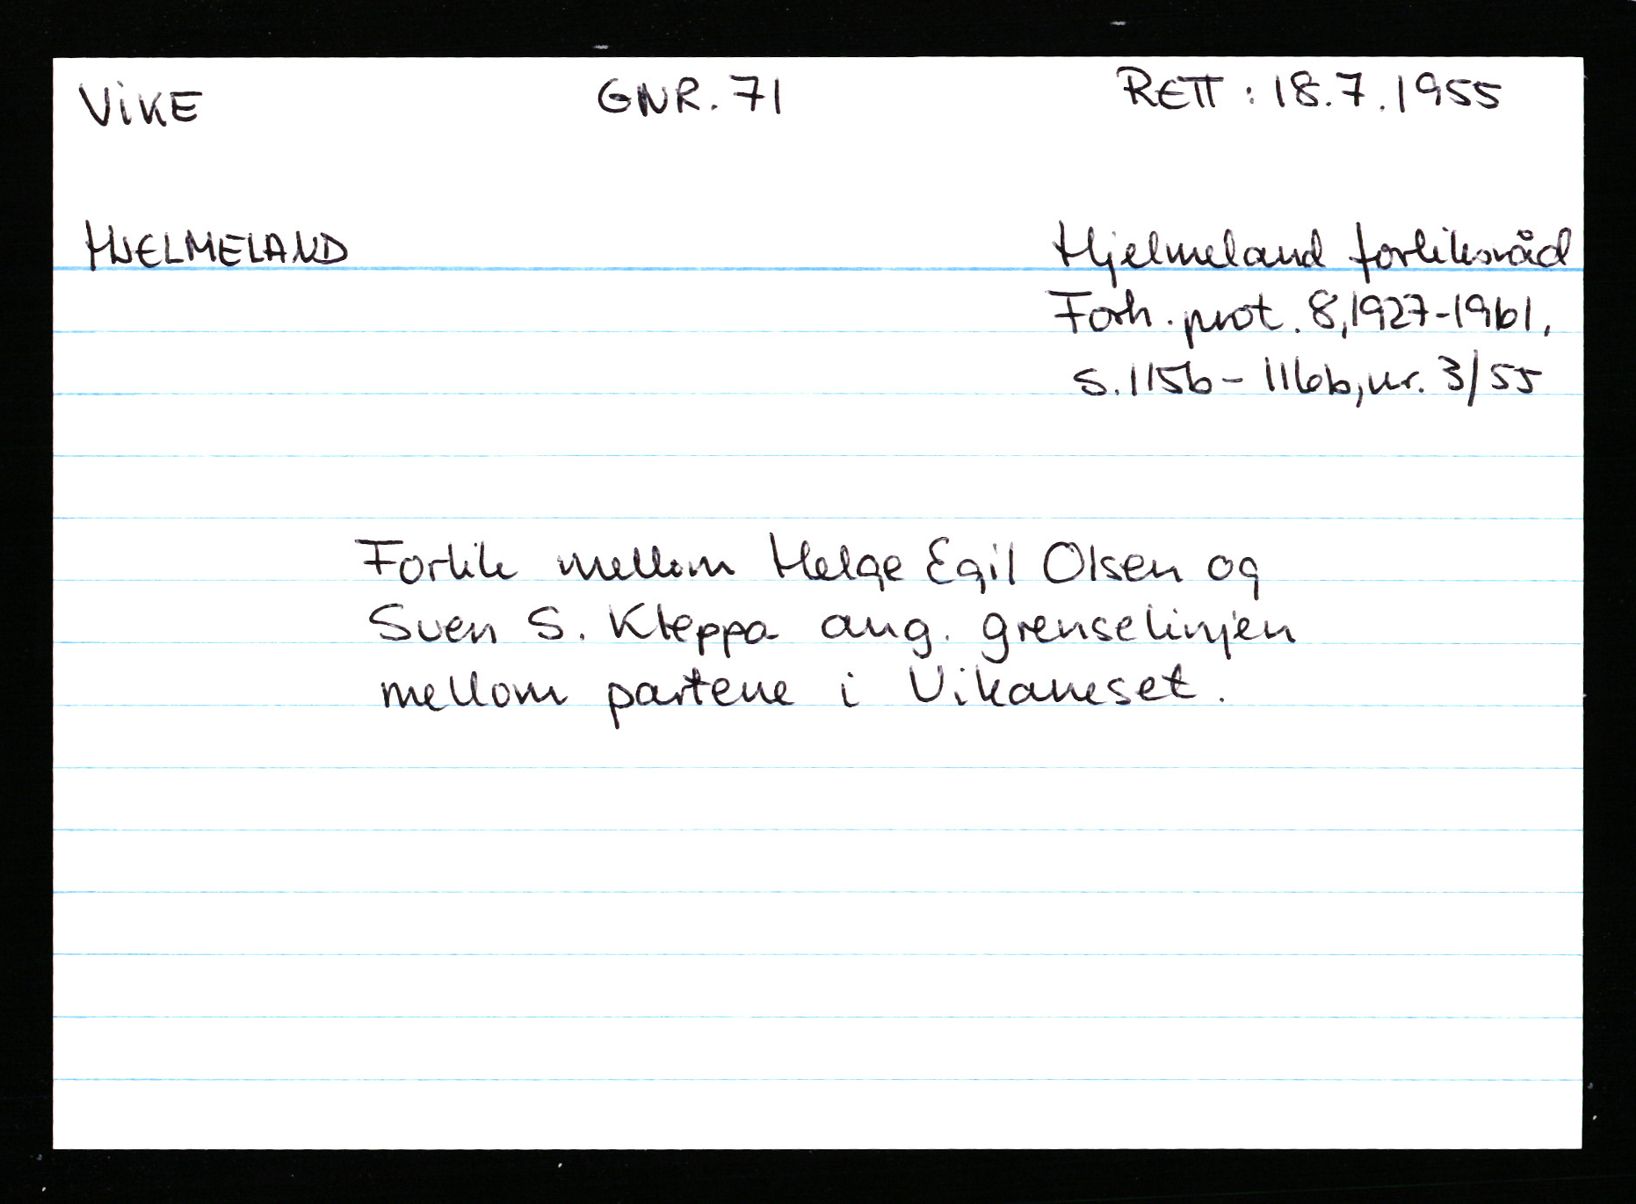 VIKE GNR. 71 RETT: 18.7.1955
HJELMELAND Hjelmeland forliksråd
Forh. prot. 8, 1927-1961,
s. 115b - 116b, nr. 3/55
Forlik mellom Helge Egil Olsen og
Sven S. Kleppa ang. grenselinjen
mellom partene i Vikaneset.